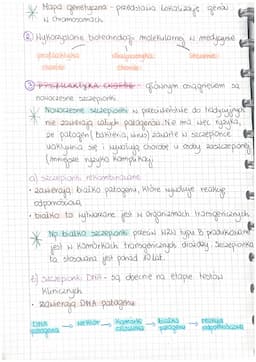 * Mapa genetyczna - przedstawia lokalizację genów
w chromosomach
② Wykorzystanie biotechnologii molekularnej w medycynie
profilaktyka diagnostyka leczenie
chorób chorób
③ PROFILAKTYKA CHORÓB - głównym osiągnięciem są
nowoczesne szczepionki
* Nowoczesne szczepionki w przeciwieństwie do tradycyjnych
nie zawierają całych patogenów. Nie ma więc ryzyka,
że patogen (bakteria, wirus) zawarte w szczepionce
uaktywnią się i wywołają chorobę u osoby zaszczepionej
(mniejsze ryzyko komplikacji)
a) szczepionki rekombinowane
• zawierają białka patogenu, które wywołuje reakcję
odpornościową
• białka to wytwarzane jest w organizmach transgenicznych
* Np. białko szczepionki przeciw WZW typu B produkowane
jest w komórkach transgenicznych drożdży. Szczepionka
ta stosowana jest ponad 20 lat.
b) szczepionki DNA - są obecnie na etapie testów
klinicznych
• zawierają DNA patogenu
DNA patogenu → wektor → komórka człowieka → białko patogenu → reakcja odpornościowa